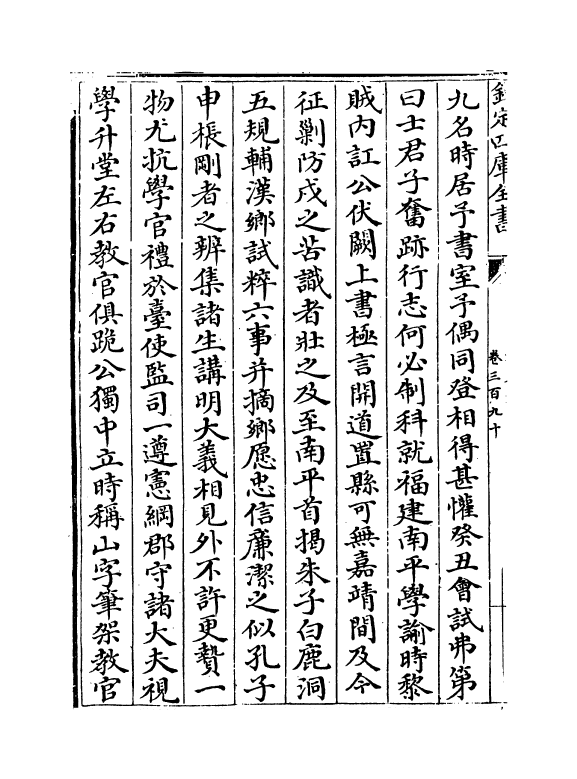 欽定四庫全書
卷三百九十
九名時居予書室予偶同登相得甚懽癸丑會試弗第
曰士君子奮跡行志何必制科就福建南平學諭時黎
賊内訌公伏闕上書極言開道置縣可無嘉靖間及今
征剿防戍之苦識者壯之及至南平首揭朱子白鹿洞
五規輔漢鄉試粹六事并摘鄉愿忠信廉潔之似孔子
申棖剛者之辨集諸生講明大義相見外不許更贄一
物尤抗學官禮於臺使監司一遵憲綱郡守諸大夫視
學升堂左右教官俱跪公獨中立時稱山字筆架教官